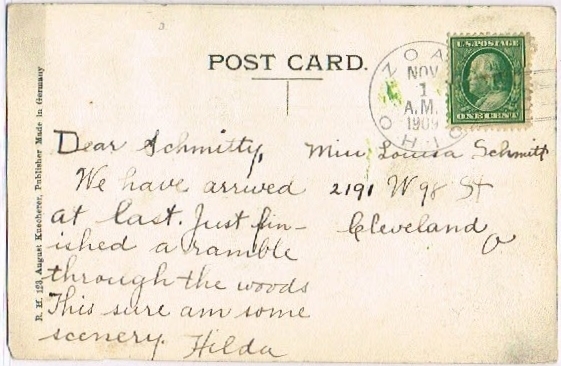 POST CARD.
ZOAR
OHIO
NOV
1
A.M.
1909
U.S. POSTAGE
ONE CENT
R. H. 123, August Kuecherer, Publisher Made in Germany
Dear Schmitty,
We have arrived
at last. Just fin-
ished a ramble
through the woods
This sure am some
scenery. Hilda
Miss Louisa Schmitt
2191 W 98 St
Cleveland
O